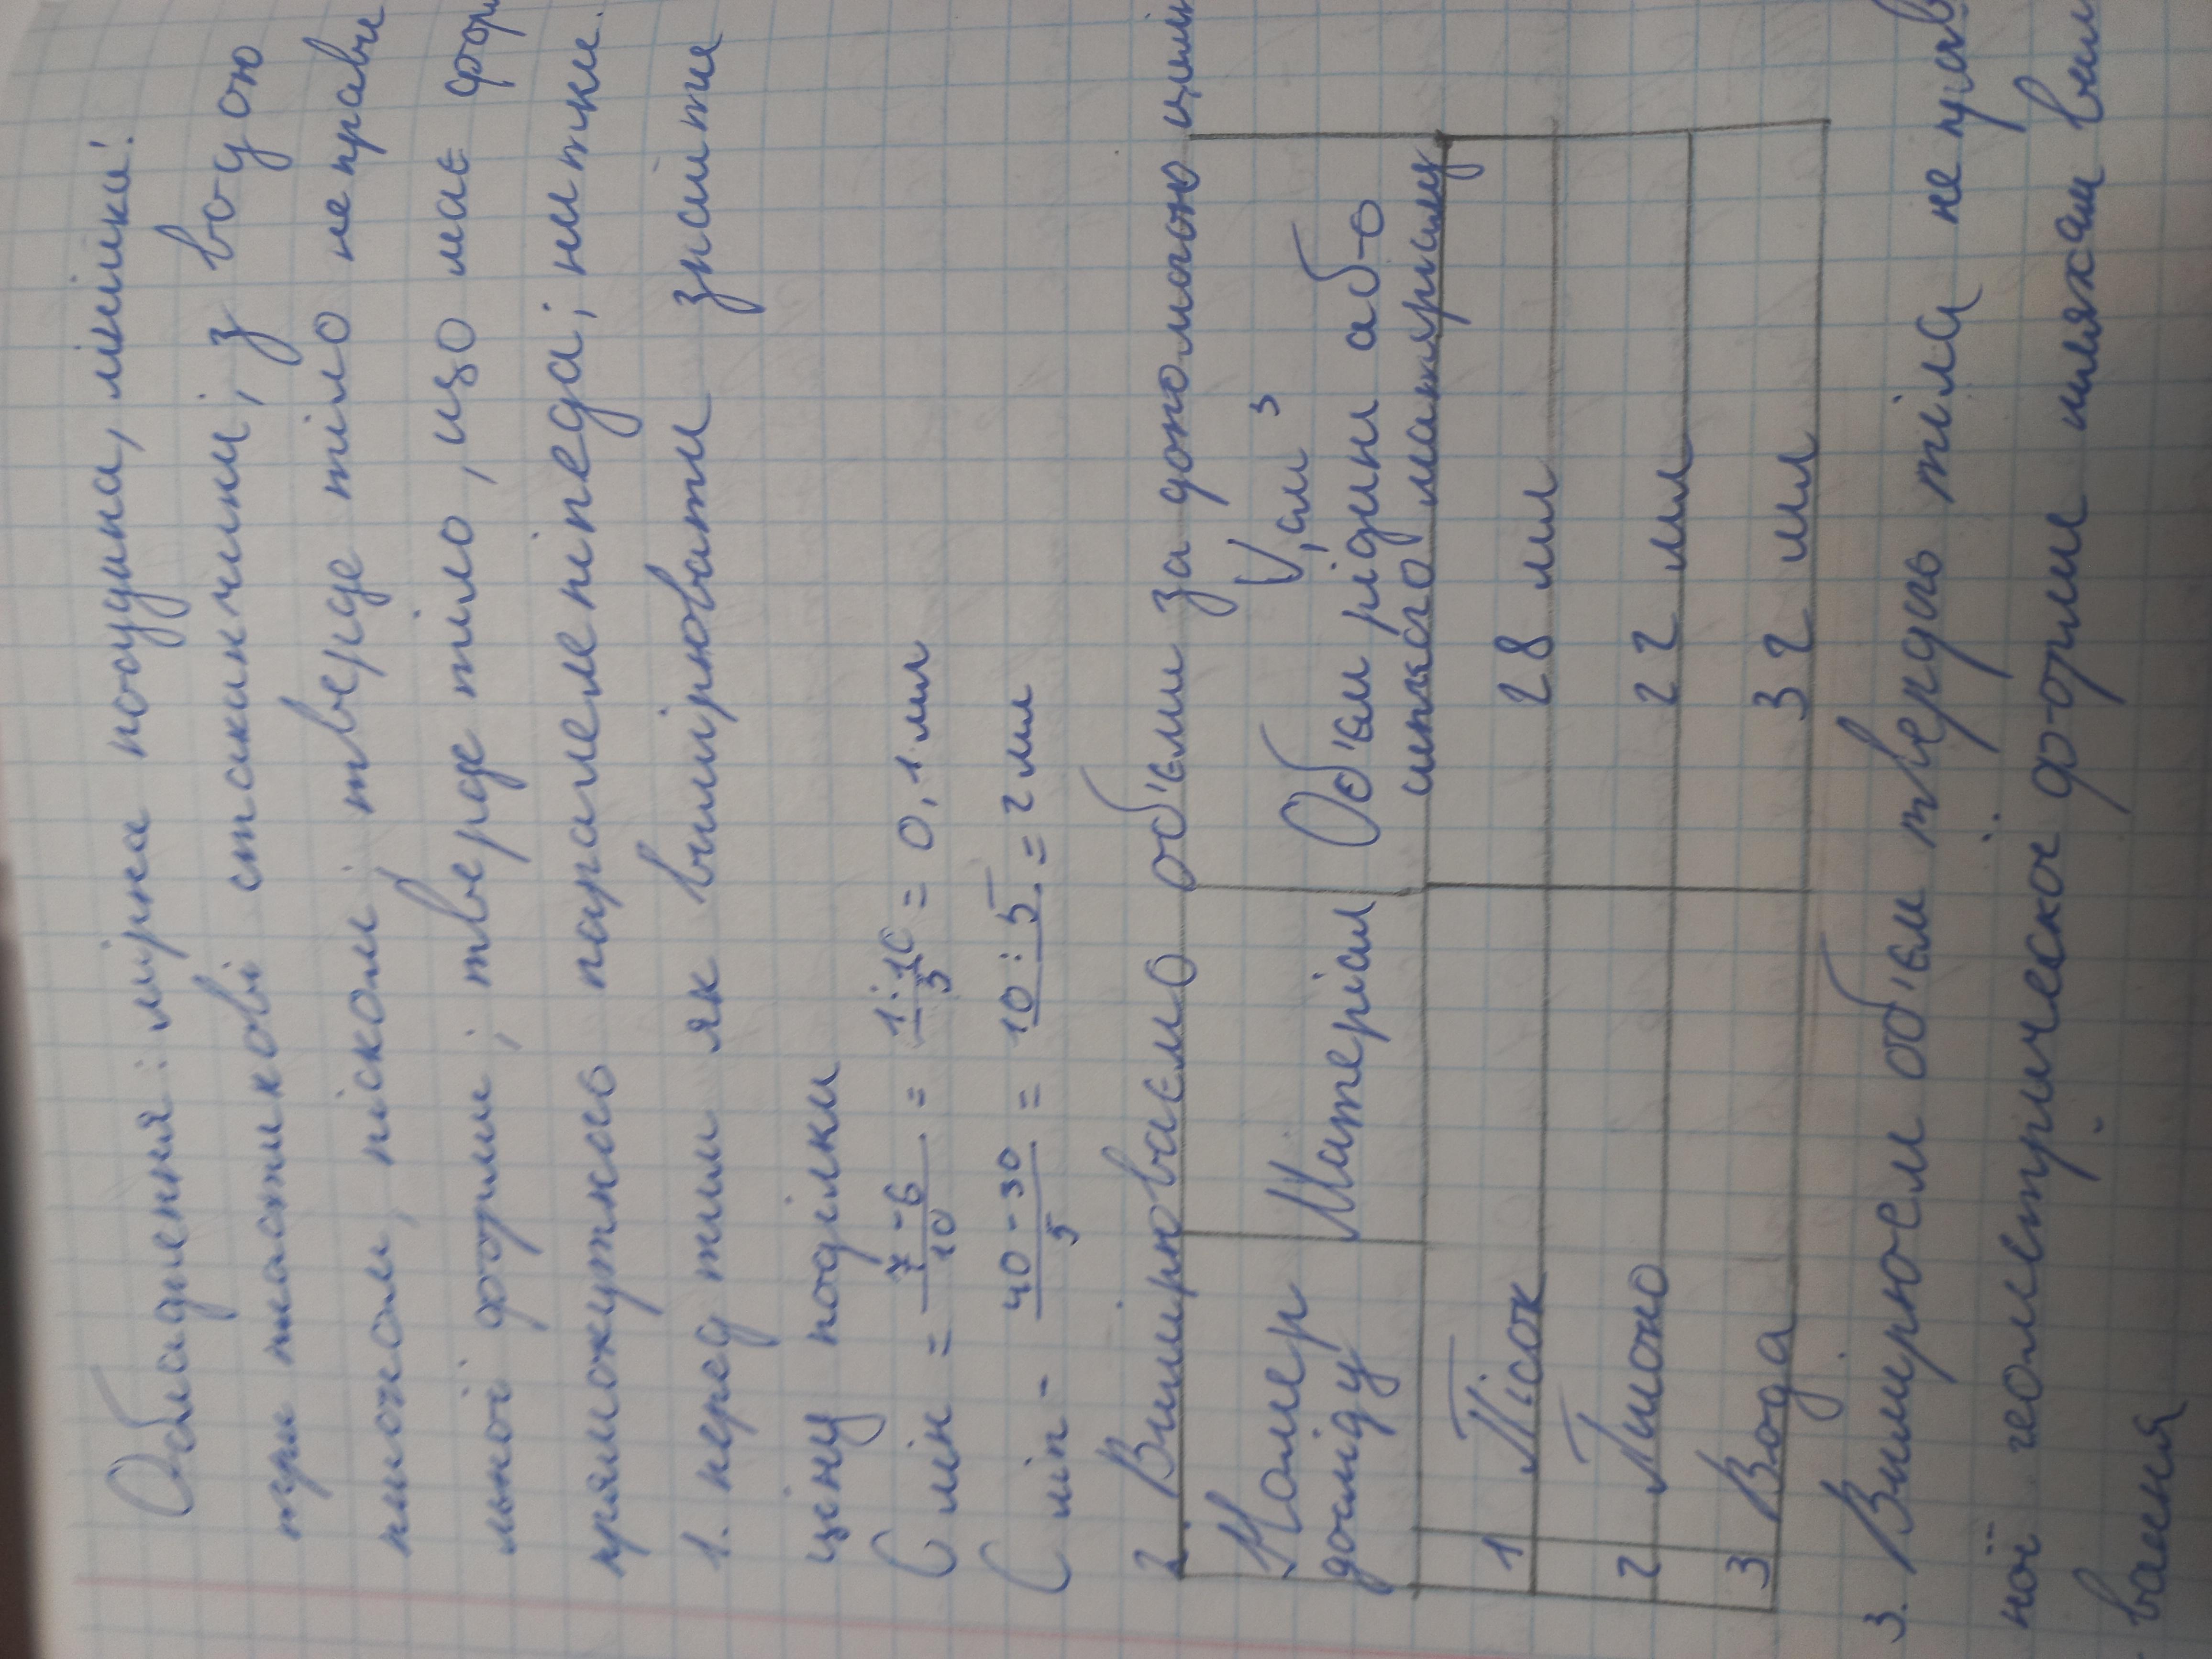 Обладнення: мірна посудина, лінійка!
три пластикові стаканчики, з водою
пшоном, піском; тверде тіло неправи
льної форми; тверде тіло, що має фор
прямокутного паралелепіпеда; нитки.
1. перед тим як вимірювати знайти
ціну поділки
С лін = 7-6/10 = 1:10 = 0,1 мл
С міп - 40-30/5 = 10:5 = 2 мл
2. Вимірюваємо об'єми за допомогою
Номер досліду Матеріал V, см³ Об'єм рідини або сипкого матеріалу
1 Пісок 28 мл
2 Пшоно 22 мл
3 Вода 32 мл
3. Вимірюєм об'єм твердгь тіла не прав
ної геометрическоє форми шляхом вим
вання